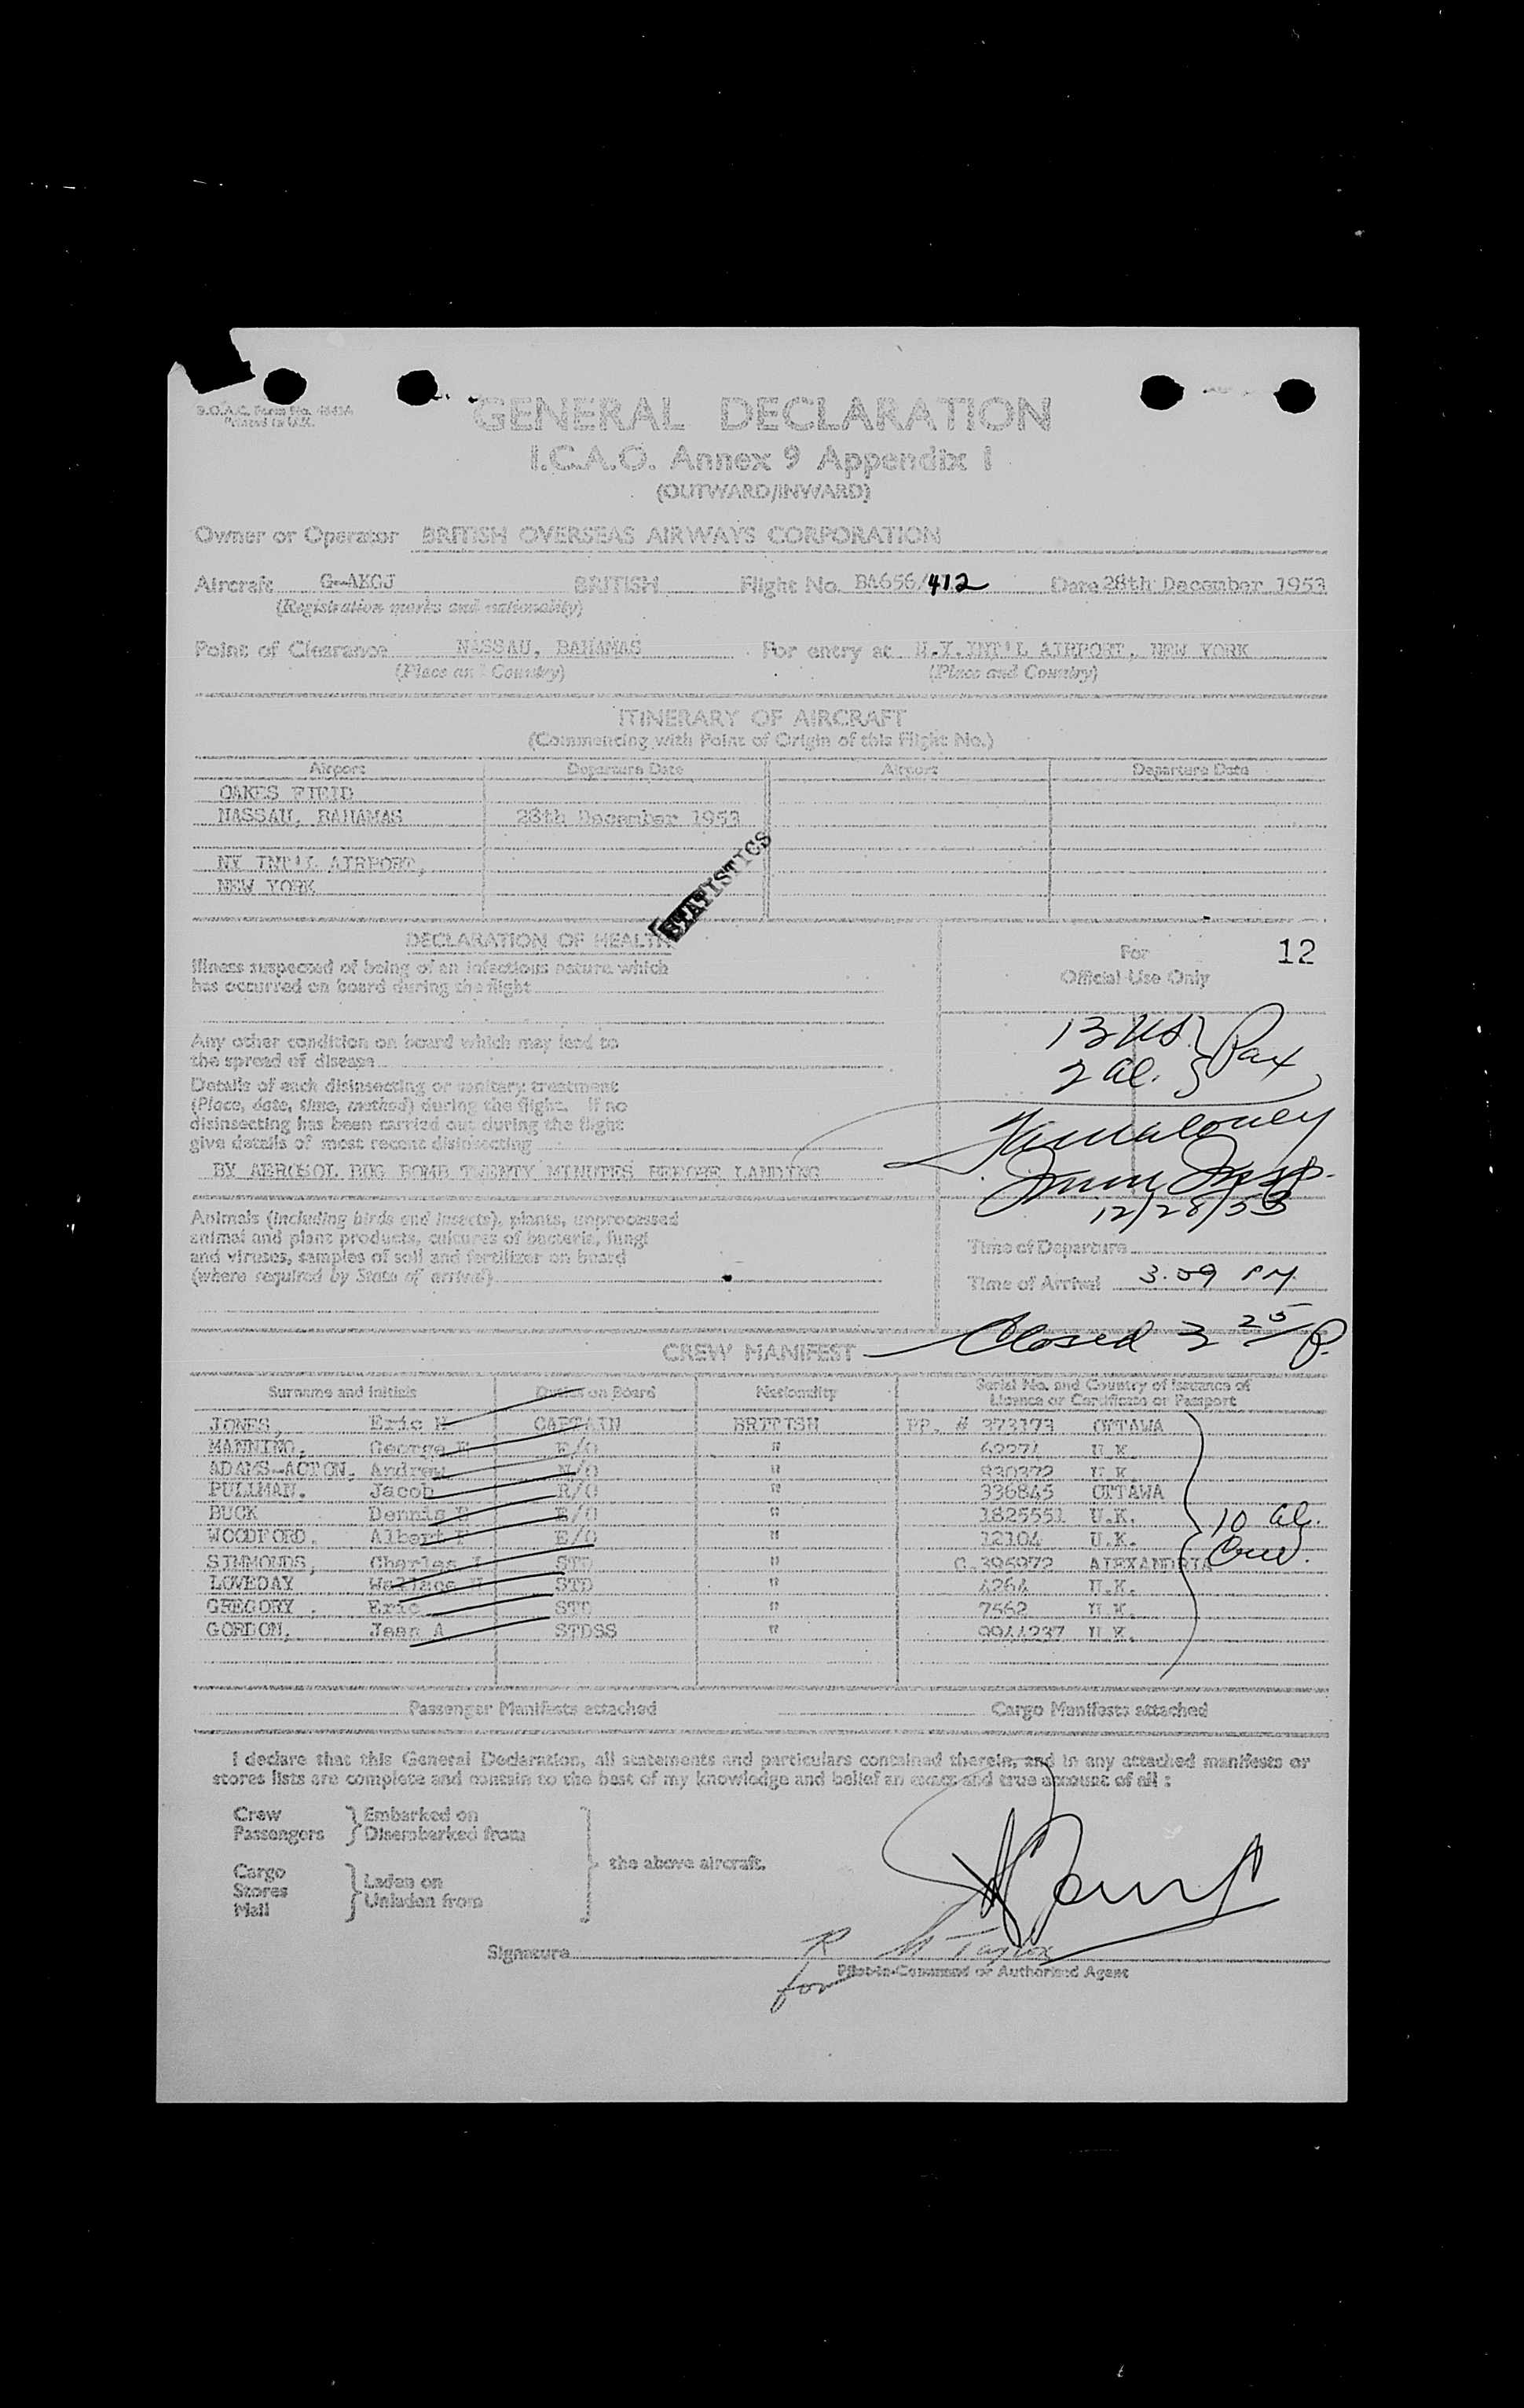 B.O.A.C. Form No.
Printed in U.K.
GENERAL DECLARATION
I.C.A.O. Annex 9 Appendix 1
(OUTWARD/INWARD)
Owner or Operator BRITISH OVERSEAS AIRWAYS CORPORATION
Aircraft G-AKGJ BRITISH Flight No. BA656/412 Date 28th December 1953
(Registration marks and nationality)
Point of Clearance NASSAU, BAHAMAS For entry at N.Y.INT'L AIRPORT, NEW YORK
(Place and Country) (Place and Country)
ITINERARY OF AIRCRAFT
(Commencing with Point of Origin of this Flight No.)
Airport Departure Date Airport Departure Date
OAKES FIELD
NASSAU, BAHAMAS 28th December 1953
NY INT'L AIRPORT,
NEW YORK
STATISTICS
DECLARATION OF HEALTH
Illness suspected of being of an infectious nature which
has occurred on board during the flight
Any other condition on board which may lead to
the spread of disease
Details of each disinsecting or sanitary treatment
(Place, date, time, method) during the flight. If no
disinsecting has been carried out during the flight
give details of most recent disinsecting
BY AEROSOL BUG BOMB TWENTY MINUTES BEFORE LANDING
Animals (including birds and insects), plants, unprocessed
animal and plant products, cultures of bacteria, fungi
and viruses, samples of soil and fertilizer on board
(where required by State of arrival)
For 12
Official Use Only
13 US. } Pax
2 Al.
Imm Insp.
12/28/53
Time of Departure
Time of Arrival 3.09 PM
Closed 3 25 P.
CREW MANIFEST
Surname and Initials Duties on Board Nationality Serial No. and Country of Issuance of
Licence or Certificate or Passport
JONES, Eric W CAPTAIN BRITISH PP. # 373173 OTTAWA
MANNING, George E/O " 62274 U.K.
ADAMS-ACTON, Andrew N/O " 830372 U.K.
PULLMAN. Jacob R/O " 336845 OTTAWA
BUCK Dennis E/O " 1825551 U.K.
WOODFORD. Albert F E/O " 12104 U.K.
SIMMONDS, Charles STD " C.396972 ALEXANDRIA
LOVEDAY Wallace STD " 4264 U.K.
GREGORY . Eric STD " 7562 U.K.
GORDON, Jean A STDSS " 9944237 U.K.
10 Al.
Crew.
Passenger Manifests attached Cargo Manifests attached
I declare that this General Declaration, all statements and particulars contained therein, and in any attached manifests or
stores lists are complete and contain to the best of my knowledge and belief an exact and true account of all :
Crew } Embarked on
Passengers } Disembarked from
the above aircraft.
Cargo
Stores } Laden on
Mail } Unladen from
Signature R W Taylor
for Pilot-in-Command or Authorised Agent